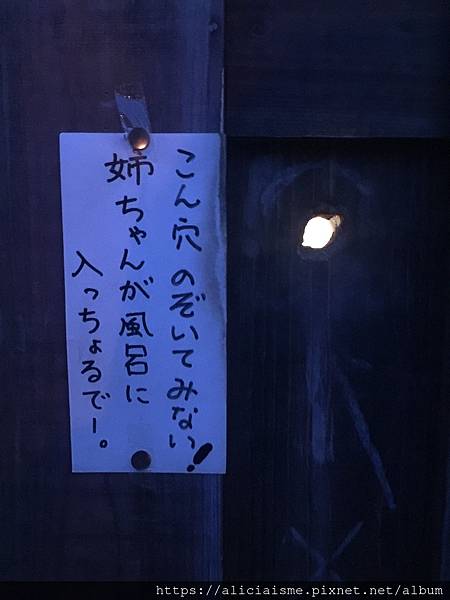 こん穴のぞいてみない!
姉ちゃんが風呂に
入っちょるでー。
https://aliciaisme.pixnet.net/album